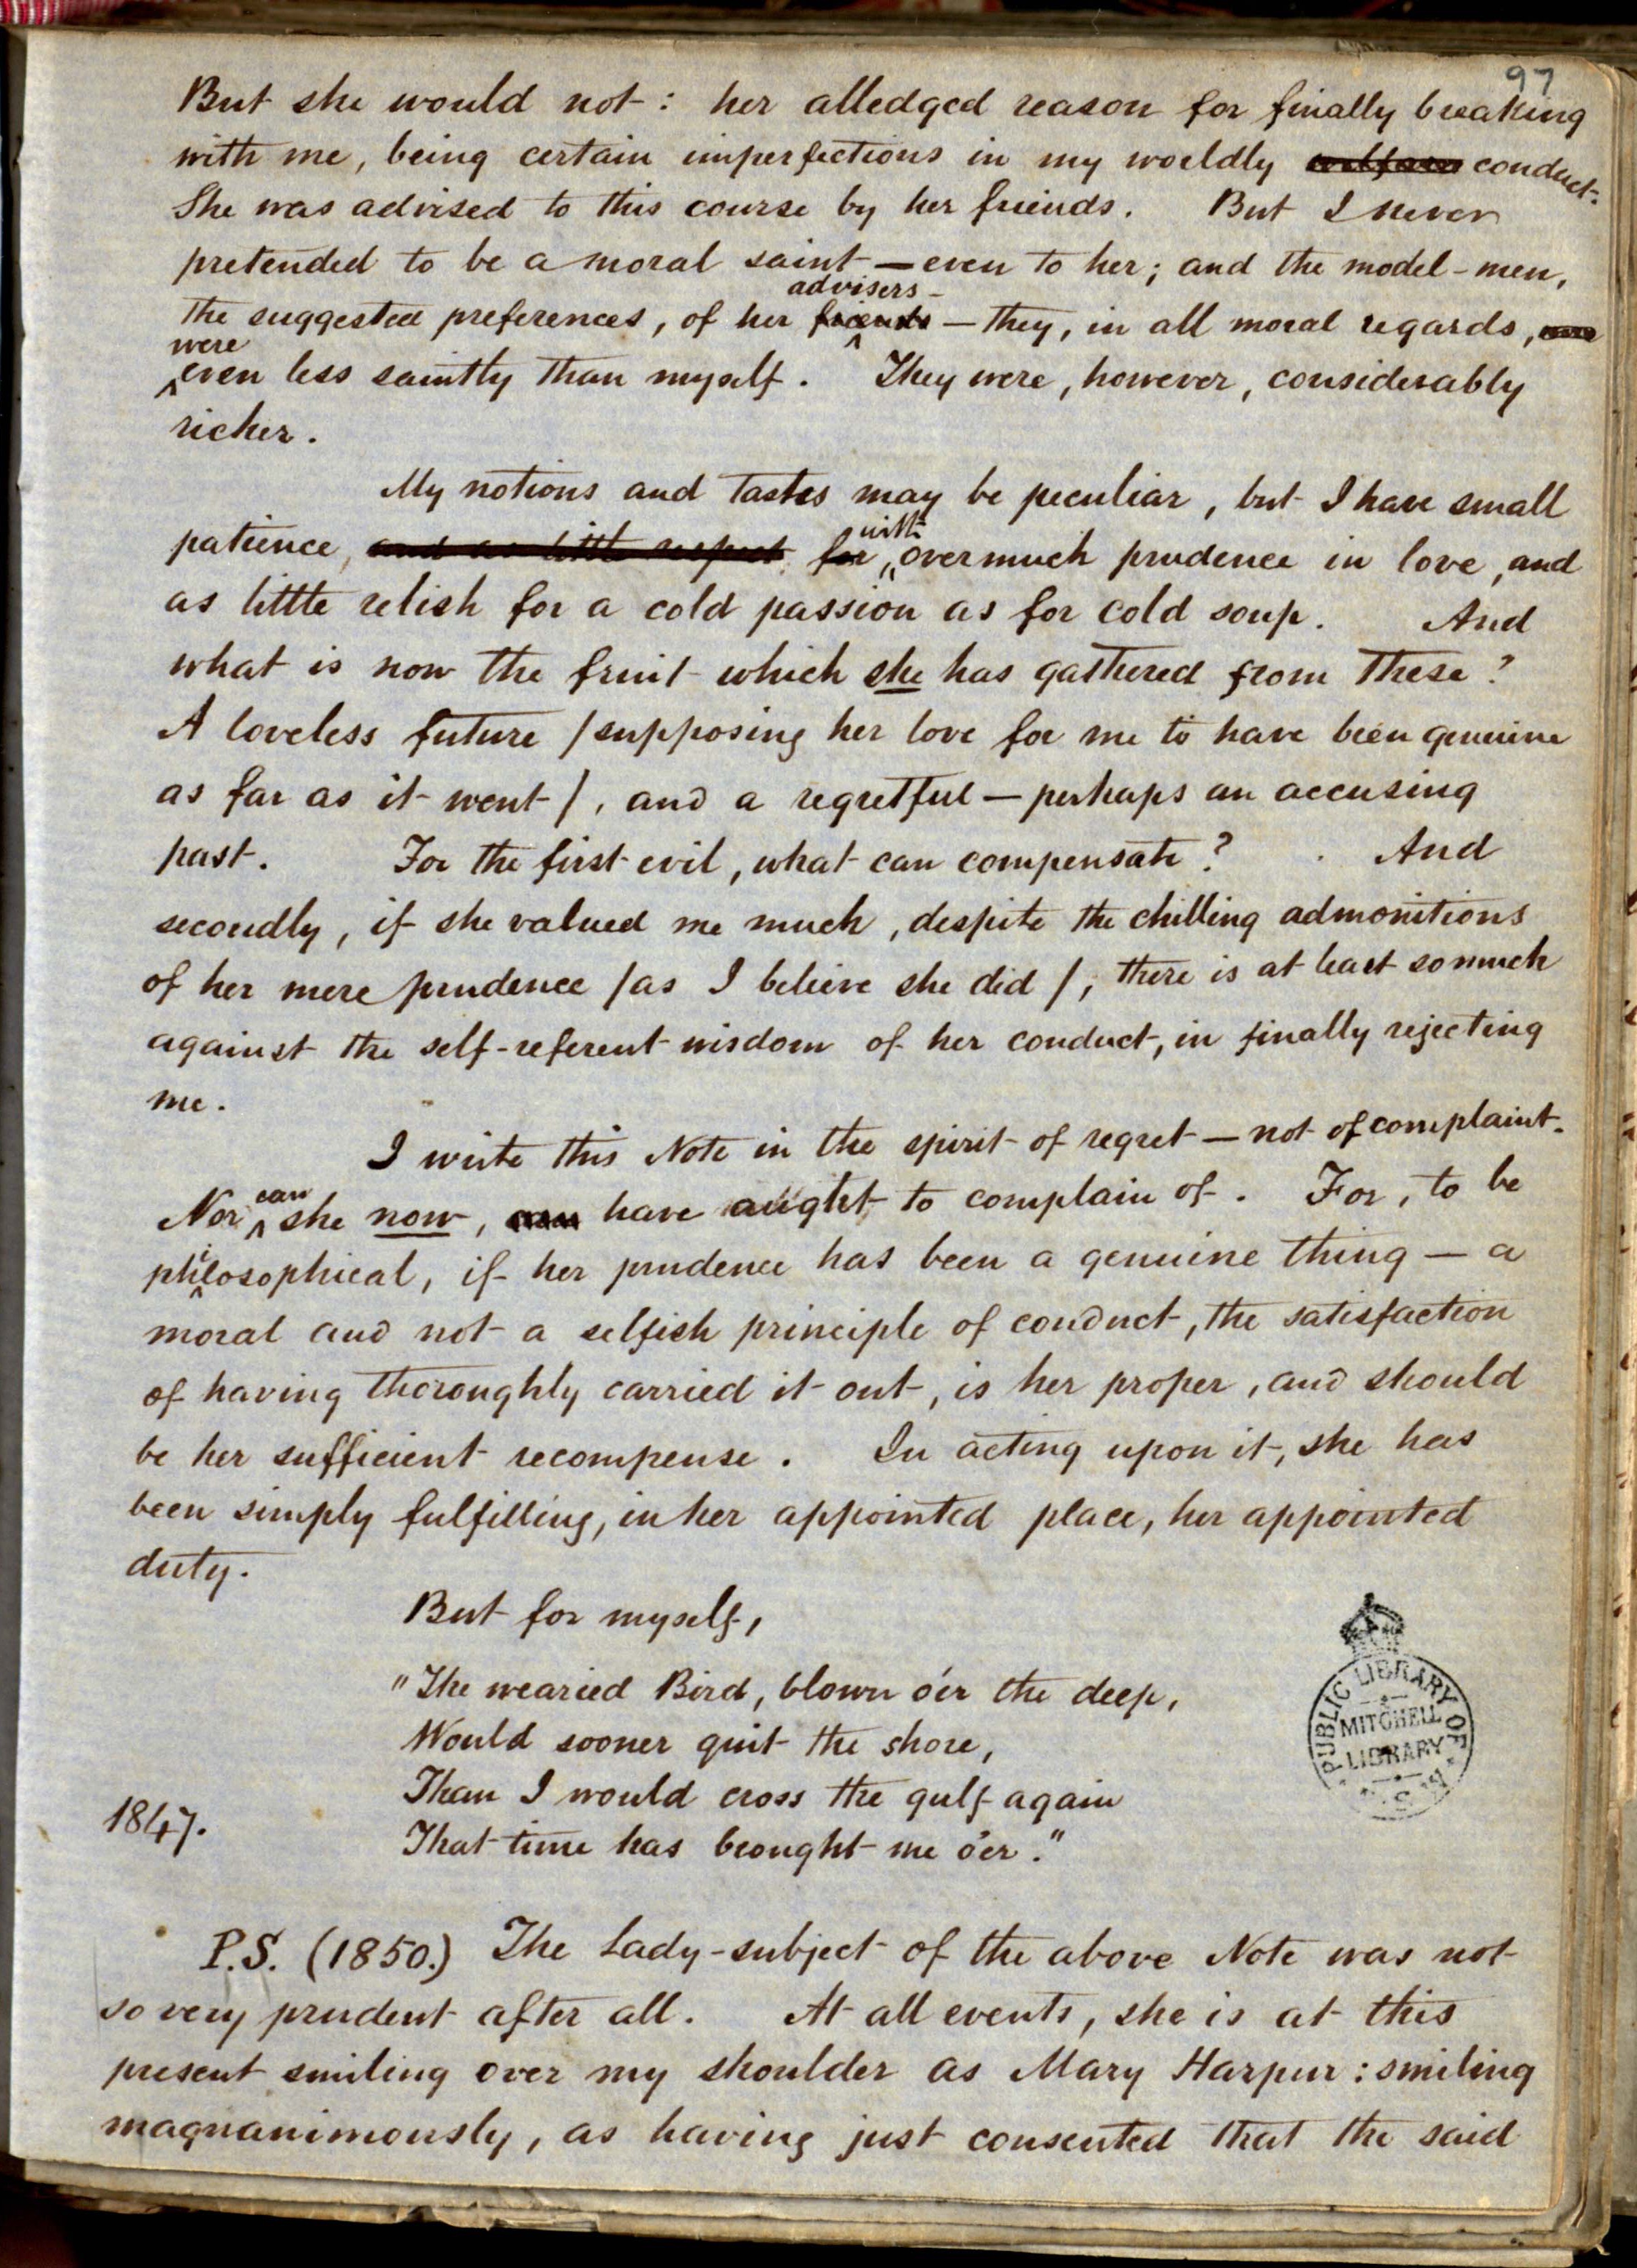 97
But she would not: her alledged reason for finally breaking
with me, being certain imperfections in my worldly welfare conduct.
She was advised to this course by her friends. But I never
pretended to be a moral saint — even to her; and the model-men,
advisers
the suggested preferences, of her friends — they, in all moral regards, were
were
even less saintly than myself. They were, however, considerably
richer.
My notions and tastes may be peculiar, but I have small
with
patience, and as little respect for overmuch prudence in love, and
as little relish for a cold passion as for cold soup. And
what is now the fruit which she has gathered from these?
A loveless future /supposing her love for me to have been genuine
as far as it went/, and a regretful — perhaps an accusing
past. For the first evil, what can compensate? And
secondly, if she valued me much, despite the chilling admonitions
of her mere prudence /as I believe she did/, there is at least so much
against the self-referent wisdom of her conduct, in finally rejecting
me.
I write this Note in the spirit of regret — not of complaint.
can
Nor she now, can have aught to complain of. For, to be
philosophical, if her prudence has been a genuine thing — a
moral and not a selfish principle of conduct, the satisfaction
of having thoroughly carried it out, is her proper, and should
be her sufficient recompense. In acting upon it, she has
been simply fulfilling, in her appointed place, her appointed
duty.
But for myself,
"The wearied Bird, blown o'er the deep,
Would sooner quit the shore,
Than I would cross the gulf again
1847.
That time has brought me o'er."
PUBLIC LIBRARY OF N.S.W.
MITCHELL
LIBRARY
P.S. (1850.) The Lady-subject of the above Note was not
so very prudent after all. At all events, she is at this
present smiling over my shoulder as Mary Harpur: smiling
magnanimously, as having just consented that the said